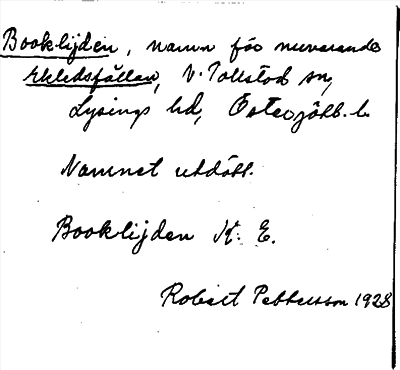 Booklijden, namn för nuvarande
Ekledsfällan, V. Tollstad sn,
Lysings hd, Östergötl. l.
Namnet utdött.
Booklijden K. E.
Robert Pettersson 1928